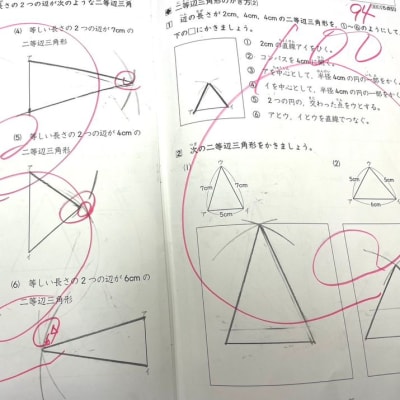 長さの2つの辺が次のような二等辺三角
(4) 等しい長さの2つの辺が7cmの
二等辺三角形
(5) 等しい長さの2つの辺が4cmの
二等辺三角形
(6) 等しい長さの2つの辺が6cmの
二等辺三角形
二等辺三角形のかき方(2)
94
100
1 辺の長さが2cm、4cm、4cmの二等辺三角形を、①~⑥のようにして、
下の□にかきましょう。
① 2cmの直線アイをひく。
② コンパスを4cmに開く。
③ アを中心として、半径4cmの円の一部をかく。
④ イを中心として、半径4cmの円の一部をかく
⑤ 2つの円の、交わった点をウとする。
⑥ アとウ、イとウを直線でつなぐ。
2 次の二等辺三角形をかきましょう。
(1)
ウ
7cm
7cm
ア
5cm
イ
(2)
ウ
5cm
5cm
ア
6cm
イ